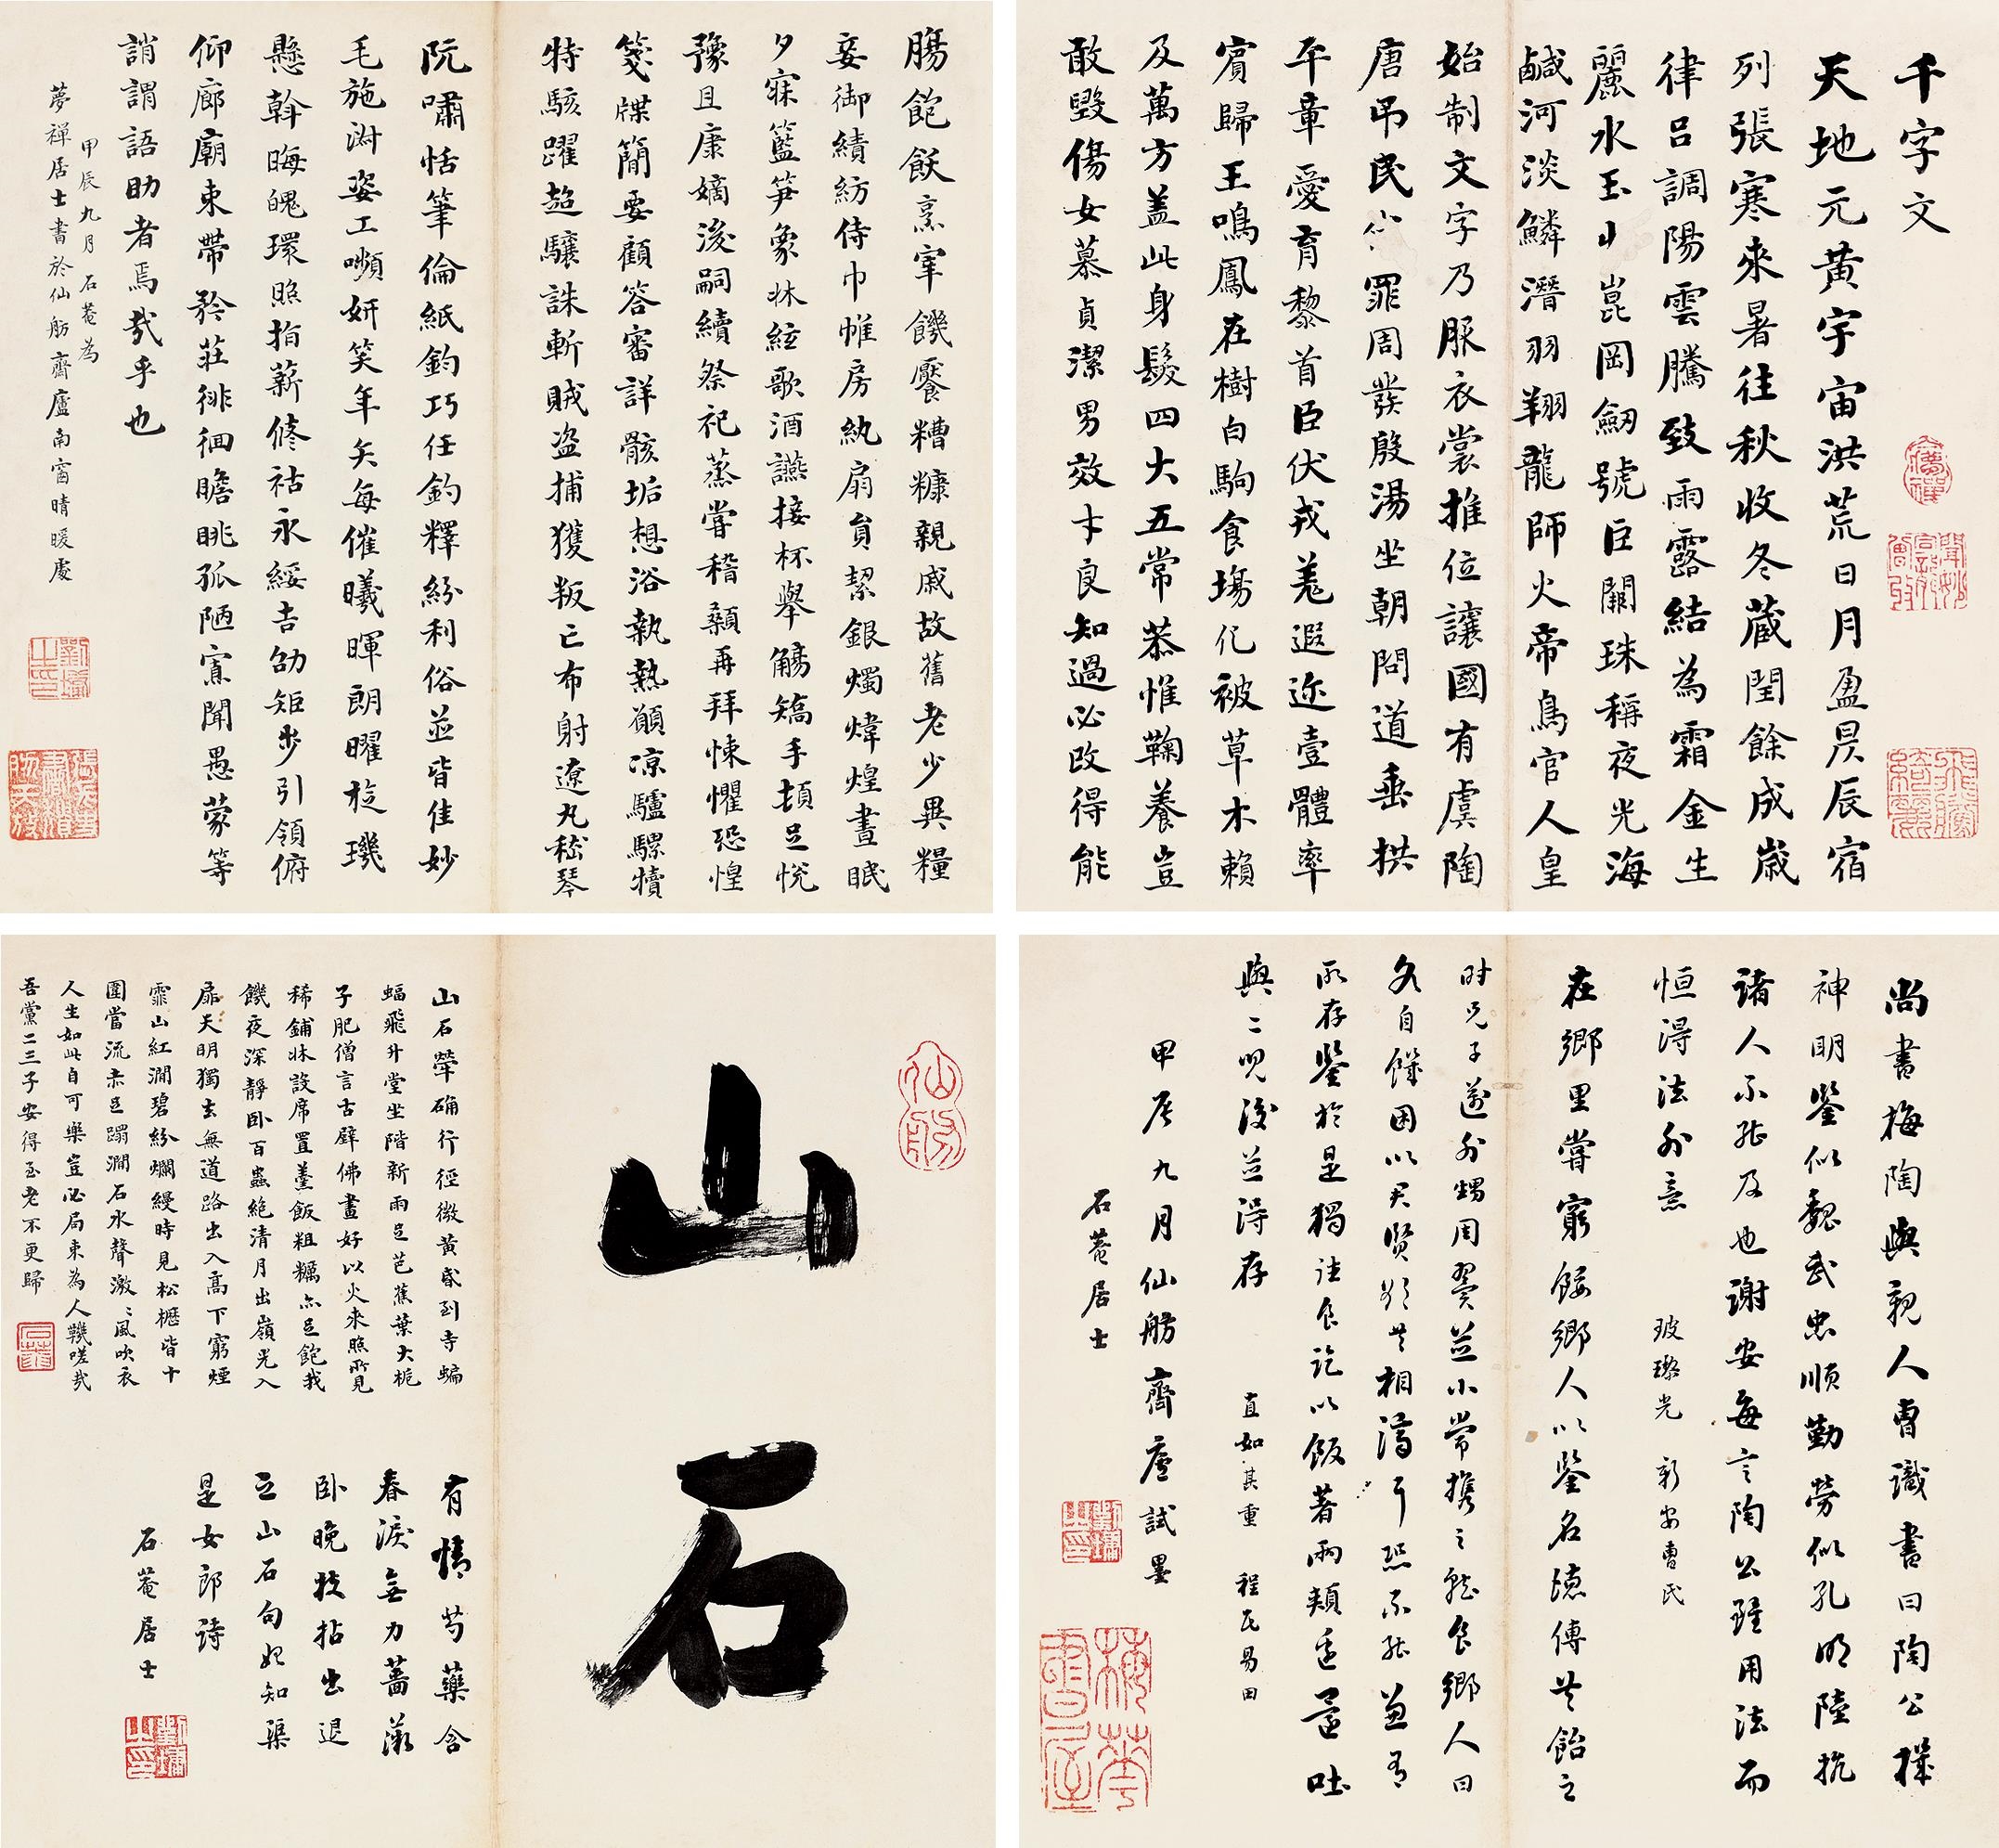 千字文
夢禪
飛騰綺麗
天地元黃宇宙洪荒日月盈昃辰宿
列張寒來暑往秋收冬蔵閏餘成歲
律呂調陽雲騰致雨露結為霜金生
麗水玉出崑岡劔號巨闕珠稱夜光海
鹹河淡鱗潛羽翔龍師火帝鳥官人皇
始制文字乃服衣裳推位讓國有虞陶
唐弔民伐罪周發殷湯坐朝問道垂拱
平章愛育黎首臣伏戎羌遐迩壹體率
賓歸王鳴鳳在樹白駒食塲化被草木賴
及萬方盖此身髮四大五常恭惟鞠養豈
敢毀傷女慕貞潔男效才良知過必改得能
膓飽飫烹宰饑饜糟糠親戚故舊老少異糧
妾御績紡侍巾帷房紈扇員絜銀燭煒煌晝眠
夕寐籃笋象牀絃歌酒讌接杯舉觴矯手頓足悅
豫且康嫡後嗣續祭祀蒸嘗稽顙再拜悚懼恐惶
箋牒簡要顧答審詳骸垢想浴執熱願凉驢騾犢
特駭躍超驤誅斬賊盗捕獲叛亡布射遼丸嵇琴
阮嘯恬筆倫紙鈞巧任釣釋紛利俗並皆佳妙
毛施淑姿工嚬妍笑年矢每催曦暉朗曜旋璣
懸斡晦魄環照指薪修祜永綏吉劭矩步引領俯
仰廊廟束帶矜莊徘徊瞻眺孤陋寡聞愚蒙等
誚謂語助者焉哉乎也
甲辰九月石菴為
夢禪居士書於仙舫齋廬南窗晴暖處
劉墉之印
尚書梅陶與親人曹識書曰陶公機
神明鑒似魏武忠順勤勞似孔明陸抗
諸人不能及也謝安每言陶公雖用法而
恒得法外意
玻瓈光 新安曹氏
在鄉里嘗窮餒鄉人以鑒名德傳共飴之
時兄子邁外甥周翼並小常攜之就食鄉人曰
各自饑困以君賢欲共相濟耳恐不能兼有
所存鑒於是獨往食訖以飯著兩頰還吐
與二兒後並得存
直如其重 程氏易田
甲辰九月仙舫齋廬試墨
石菴居士
劉墉之印
梅華書屋
仙舫
山石
山石犖确行徑微黃昏到寺蝙
蝠飛升堂坐階新雨足芭蕉葉大梔
子肥僧言古壁佛畫好以火來照所見
稀鋪牀設席置羹飯粗糲亦足飽我
饑夜深靜卧百蟲絕清月出嶺光入
扉天明獨去無道路出入高下窮煙
霏山紅澗碧紛爛縵時見松櫪皆十
圍當流赤足蹋澗石水聲激〻風吹衣
人生如此自可樂豈必局束為人鞿嗟哉
吾黨二三子安得至老不更歸
石菴
有情芍藥含
春淚無力薔薇
卧晚枝拈出退
之山石句始知渠
是女郎詩
石菴居士
劉墉之印